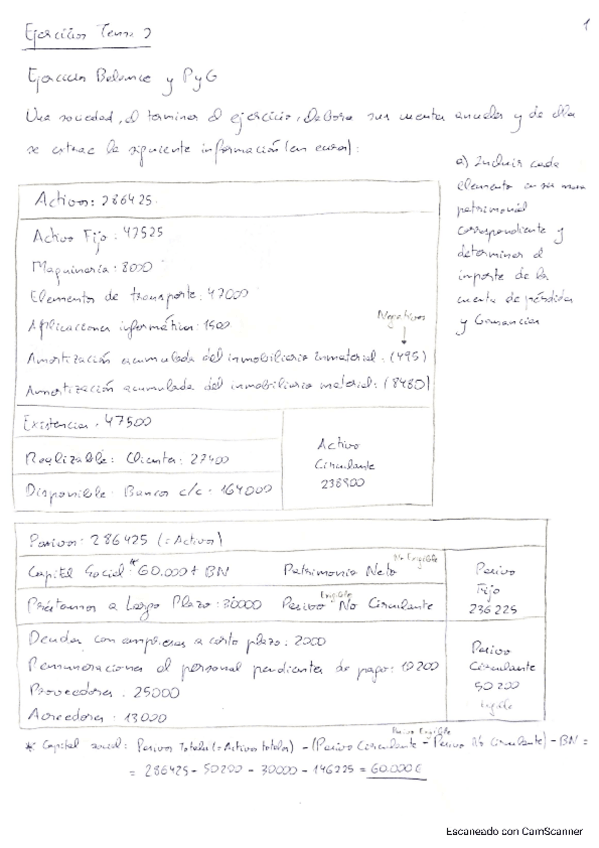 Ejercicios Tema 2
1
Ejercicios Balance y PyG
Una sociedad, al terminar el ejercicio, elabora sus cuentas anuales y de ella
se extrae la siguiente información (en euros):
a) Incluir cada
elemento en su masa
patrimonial
correspondiente y
determinar el
importe de la
cuenta de pérdidas
y Ganancias
Activos: 286425
Activo Fijo: 47525
Maquinaria: 8000
Elementos de transporte: 47000
Aplicaciones informáticas: 1500
Negativos
Amortización acumulada del inmobiliario inmaterial: (495)
Amortización acumulada del inmobiliario material: (8480)
Existencias: 47500
Realizable: Clientes: 27400
Disponible: Bancos c/c: 164000
Activo
Circulante
238900
Pasivos: 286425 (=Activos)
Capital Social*: 60.000 + BN Patrimonio Neto No Exigible
Préstamos a Largo Plazo: 30000 Pasivo No Circulante Exigible
Pasivo
Fijo
236225
Deudas con empresas a corto plazo: 2000
Remuneraciones al personal pendientes de pago: 10200
Proveedores: 25000
Acreedores: 13000
Pasivo
Circulante
50200
Exigible
Pasivo Exigible
* Capital social: Pasivos totales (=Activos totales) - (Pasivo Circulante - Pasivo No Circulante) - BN =
= 286425 - 50200 - 30000 - 146225 = 60.000€
Escaneado con CamScanner